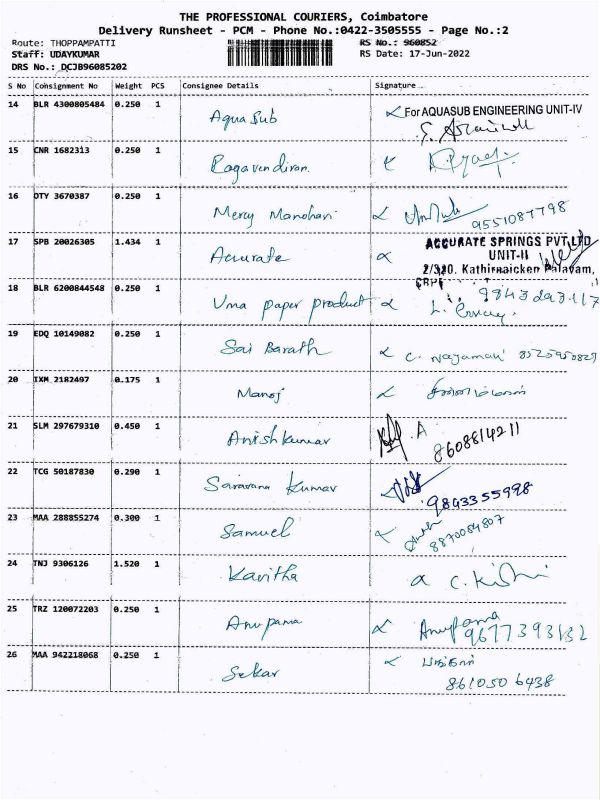 THE PROFESSIONAL COURIERS, Coimbatore
Delivery Runsheet - PCM - Phone No.:0422-3505555 - Page No.:2
Route: THOPPAMPATTI RS No.: 960852
Staff: UDAYKUMAR RS Date: 17-Jun-2022
DRS No.: DCJB96085202
S No Consignment No Weight PCS Consignee Details Signature
14 BLR 4300805484 0.250 1 Aqua Sub For AQUASUB ENGINEERING UNIT-IV
15 CNR 1682313 0.250 1 Ragavendiran
16 DTY 3670387 0.250 1 Mercy Manohari 9551087798
17 SPB 20026305 1.434 1 Accurate ACCURATE SPRINGS PVT LTD
UNIT-II
2/320, Kathirnaicken Palayam,
18 BLR 6200844548 0.250 1 Uma paper product
19 EDQ 10149082 0.250 1 Sai Barath 8525950829
20 IXM 2182497 0.175 1 Manoj
21 SLM 297679310 0.450 1 Anishkumar A
8608814211
22 TCG 50187830 0.290 1 Saravana Kumar
9843355998
23 MAA 288855274 0.300 1 Samuel
8870084807
24 TNJ 9306126 1.520 1 Kavitha
25 TRZ 120072203 0.250 1 Anupama Anupama
9677393132
26 MAA 942218068 0.250 1 Sekar
8610506438